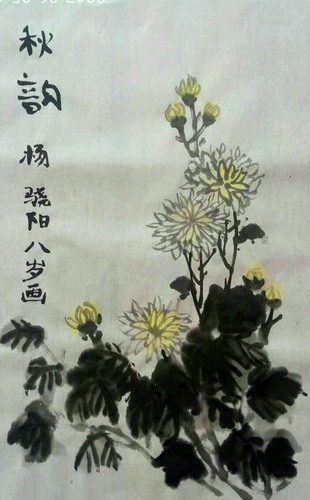 秋韵
杨骁阳八岁画